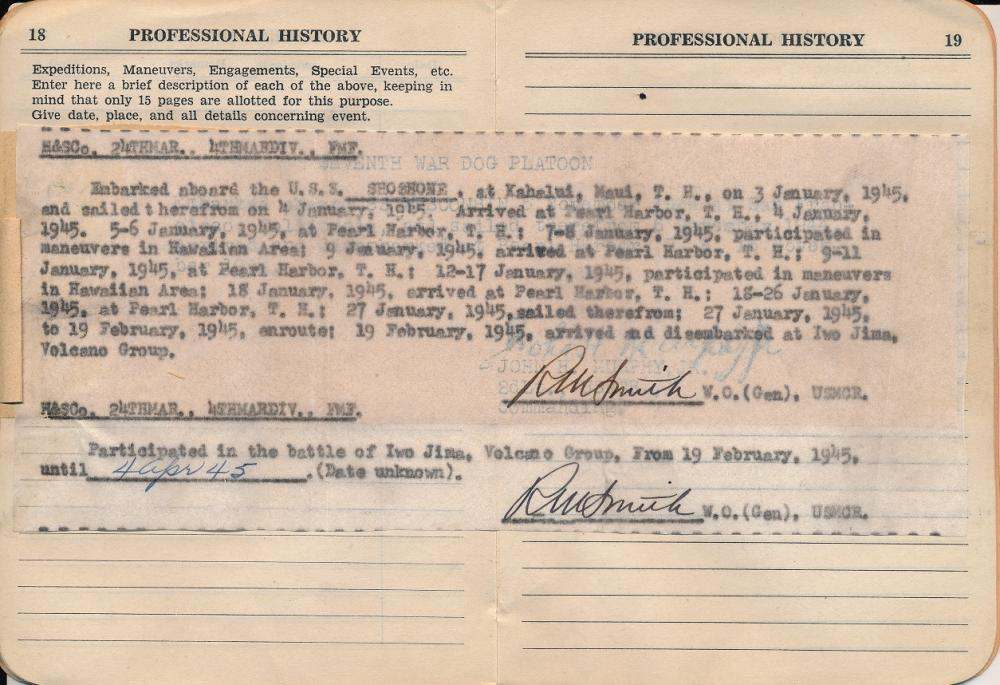 18 PROFESSIONAL HISTORY
Expeditions, Maneuvers, Engagements, Special Events, etc.
Enter here a brief description of each of the above, keeping in
mind that only 15 pages are allotted for this purpose.
Give date, place, and all details concerning event.
PROFESSIONAL HISTORY 19
H&SCo., 24THMAR., 4THMARDIV., FMF.
SEVENTH WAR DOG PLATOON
Embarked aboard the U.S.S. SHOSHONE, at Kahalui, Maui, T. H., on 3 January, 1945,
and sailed therefrom on 4 January, 1945. Arrived at Pearl Harbor, T. H., 4 January,
1945. 5-6 January, 1945, at Pearl Harbor, T. H.; 7-8 January, 1945, participated in
maneuvers in Hawaiian Area; 9 January, 1945, arrived at Pearl Harbor, T. H.; 9-11
January, 1945, at Pearl Harbor, T. H.; 12-17 January, 1945, participated in maneuvers
in Hawaiian Area; 18 January, 1945, arrived at Pearl Harbor, T. H.; 18-26 January,
1945, at Pearl Harbor, T. H.; 27 January, 1945, sailed therefrom; 27 January, 1945,
to 19 February, 1945, enroute; 19 February, 1945, arrived and disembarked at Iwo Jima,
Volcano Group.
RM Smith W.O.(Gen), USMCR.
H&SCo., 24THMAR., 4THMARDIV., FMF.
Participated in the battle of Iwo Jima, Volcano Group, From 19 February, 1945,
until 4 Apr 45 .(Date unknown).
RM Smith W.O.(Gen), USMCR.